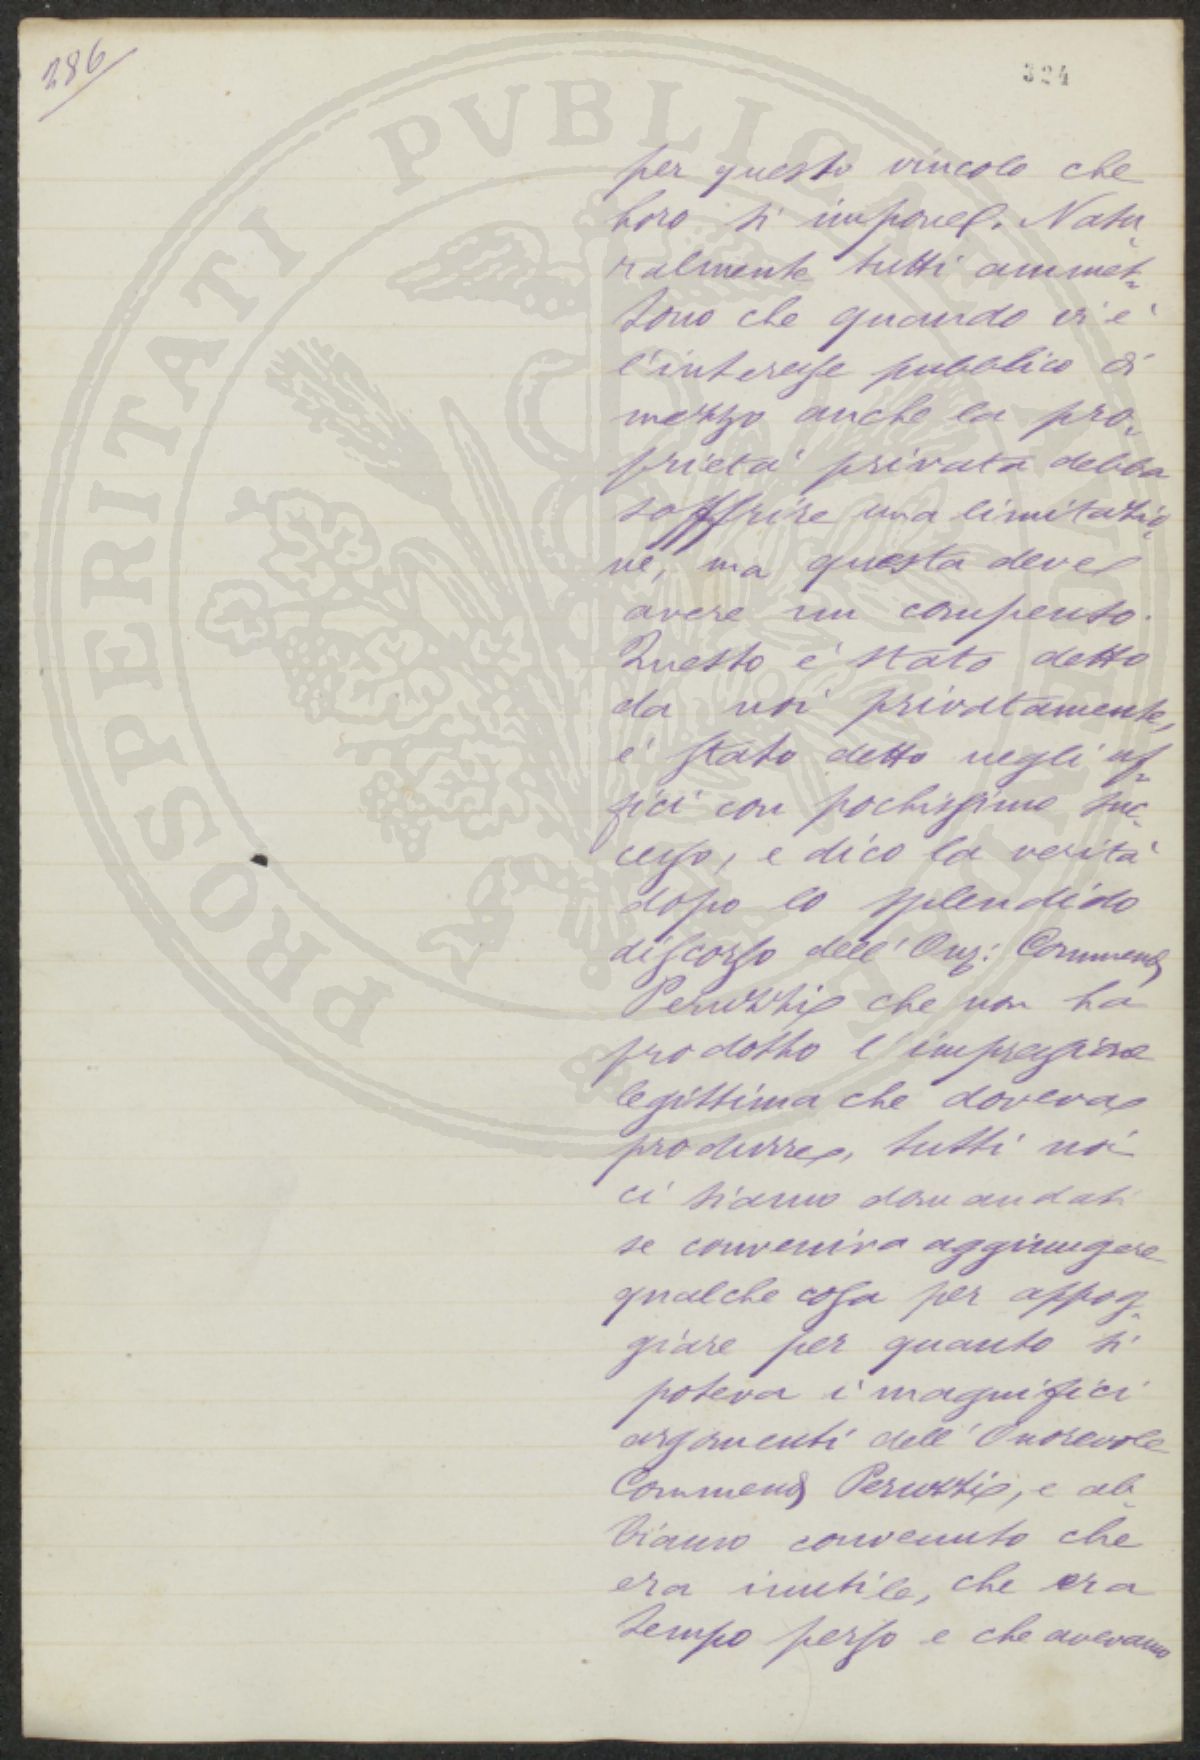 286
324
PROSPERITATI PVBLICAE
per questo vincolo che
loro si impone. Natu„
ralmente tutti ammet„
tono che quando vi é
l'interesse pubblico di
mezzo anche la pro„
prietá privata debba
soffrire una limitazio„
ne, ma questa deve
avere un compenso.
Questo é stato detto
da noi privatamente,
é stato detto negli uf„
fici con pochissimo suc„
cesso, e dico la veritá
dopo lo splendido
discorso dell'Onr: Commend
Peruzzi che non ha
prodotto l'impressione
legittima che doveva
produrre, tutti noi
ci siamo domandati
se conveniva aggiungere
qualche cosa per appog„
giare per quanto si
poteva i magnifici
argomenti dell'Onorevole
Commend Peruzzi, e ab„
biamo convenuto che
era inutile, che era
tempo perso e che avevamo